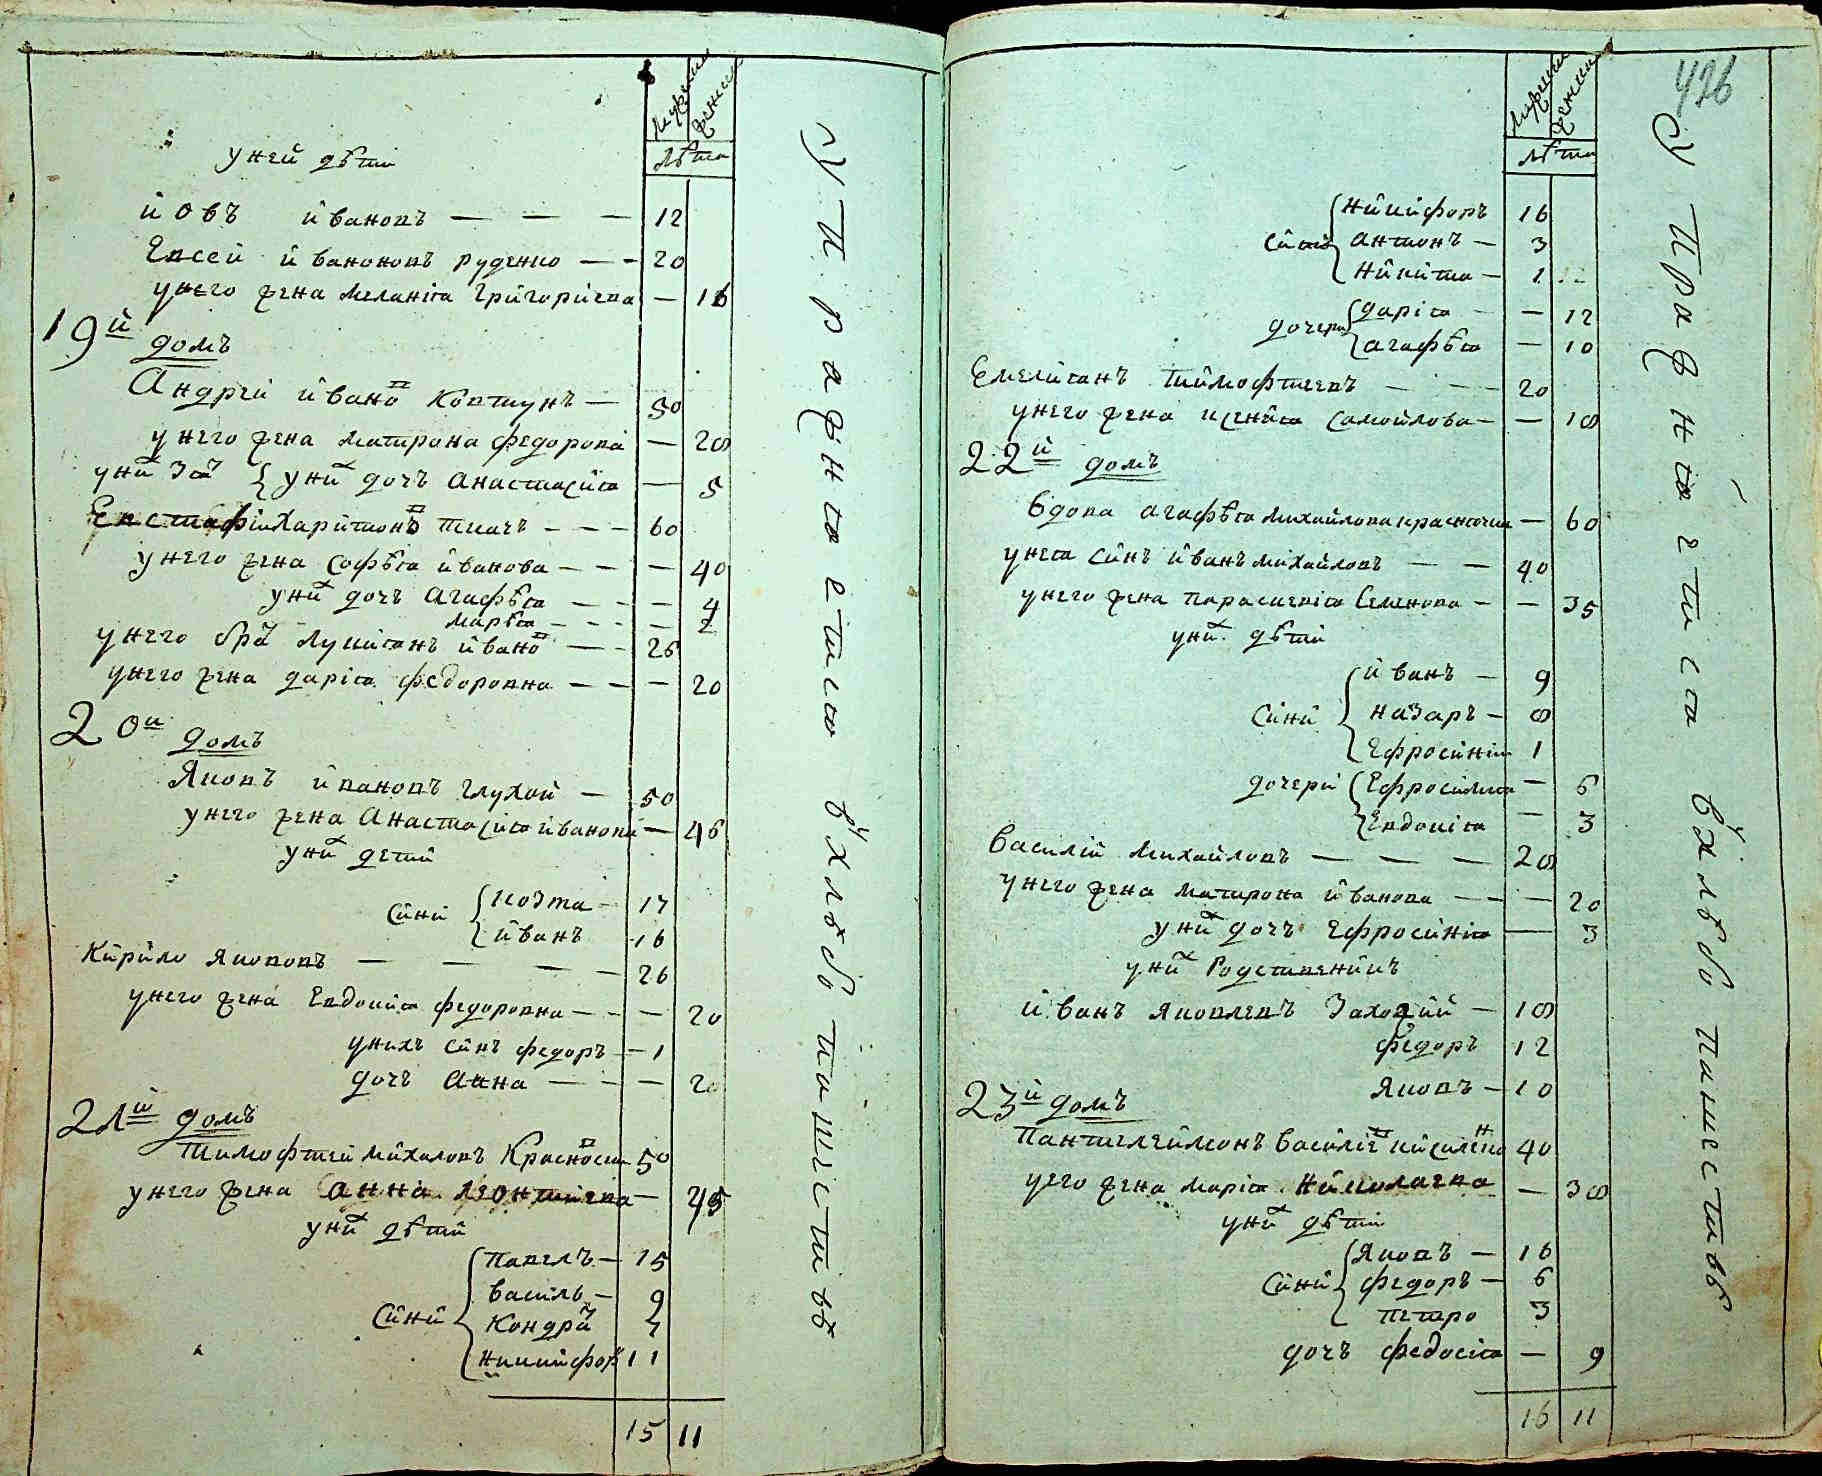 мужеска женска
лѣта
у ней дѣти
йовъ йвановъ — — — 12
Евсей йвановъ руденко — — 20
у него жена меланія Григориева — 16
19й домъ
Андрей йвано в Ковтунъ — 50
у него жена матрона федорова — 28
у них дочъ анастасия — 5
Евстафій харитонов ткачъ — — — 60
у него жена софѣя йванова — — — 40
у них дочъ агафѣя — — — 4
марѣя — — — — 2
у него бра т лукиянъ йвано в — — 26
у него жена дарія федоровна — — — 20
20й домъ
Яковъ йвановъ глухой — 50
у него жена Анастасия йванова — 46
у них дети
Сйнй
козма — 17
йванъ 16
Кирило якововъ — — — — 26
у него жена Евдокия федоровна — — — 20
у нихъ сйнъ федоръ — 1
дочъ анна — — — 20
21й домъ
Тимофтей михаловъ Красно 50
у него жена анна леонтиева — 45
у них дѣтй
Сйнй
павелъ — 15
василь — 9
Кондра т 7
никифор 11
15 11
У Пражнтаетися въ хлѣбо пашествѣ
426
мужеска женска
лѣта
Сйнй
никифоръ 16
антонъ — 3
никита — 1
дочери
дарія — — 12
агафѣя — 10
Емелиянъ тимофтеевъ — — — 20
у него жена ксения самойлова — — 18
22й домъ
вдова агафѣя михайлова — 60
у нея сйнъ йванъ михайловъ — — 40
у него жена параскевія Семенова — — 35
у них дѣтй
Сйнй
йванъ — 9
назаръ — 8
Ефросйній 1
дочерй
Ефросйния — 6
Евдокия — 3
Василій михайловъ — — — 28
у него жена матрона йванова — — — 20
у них дочъ Ефросйнія — 3
у них Родственйкъ
йванъ яковлевъ — 18
федоръ 12
Яковъ — 10
23й домъ
Пантилеймонъ василіев 40
у его жена марія николаева — 38
у них дѣти
Сйнй
Яковъ — 16
федоръ — 6
петро 3
дочъ федосія — 9
16 11